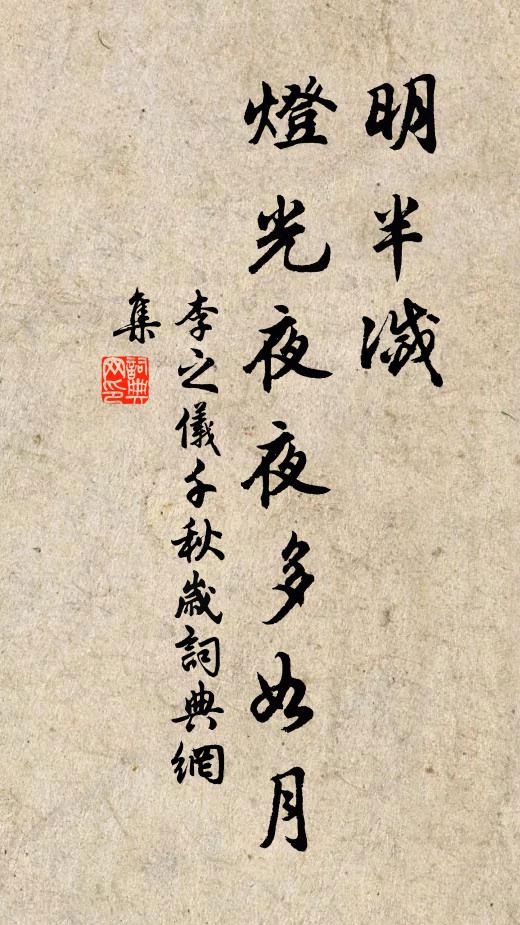 明半滅
燈光夜夜多如月
李之儀千秋歲詞典網
集
詞典
网印